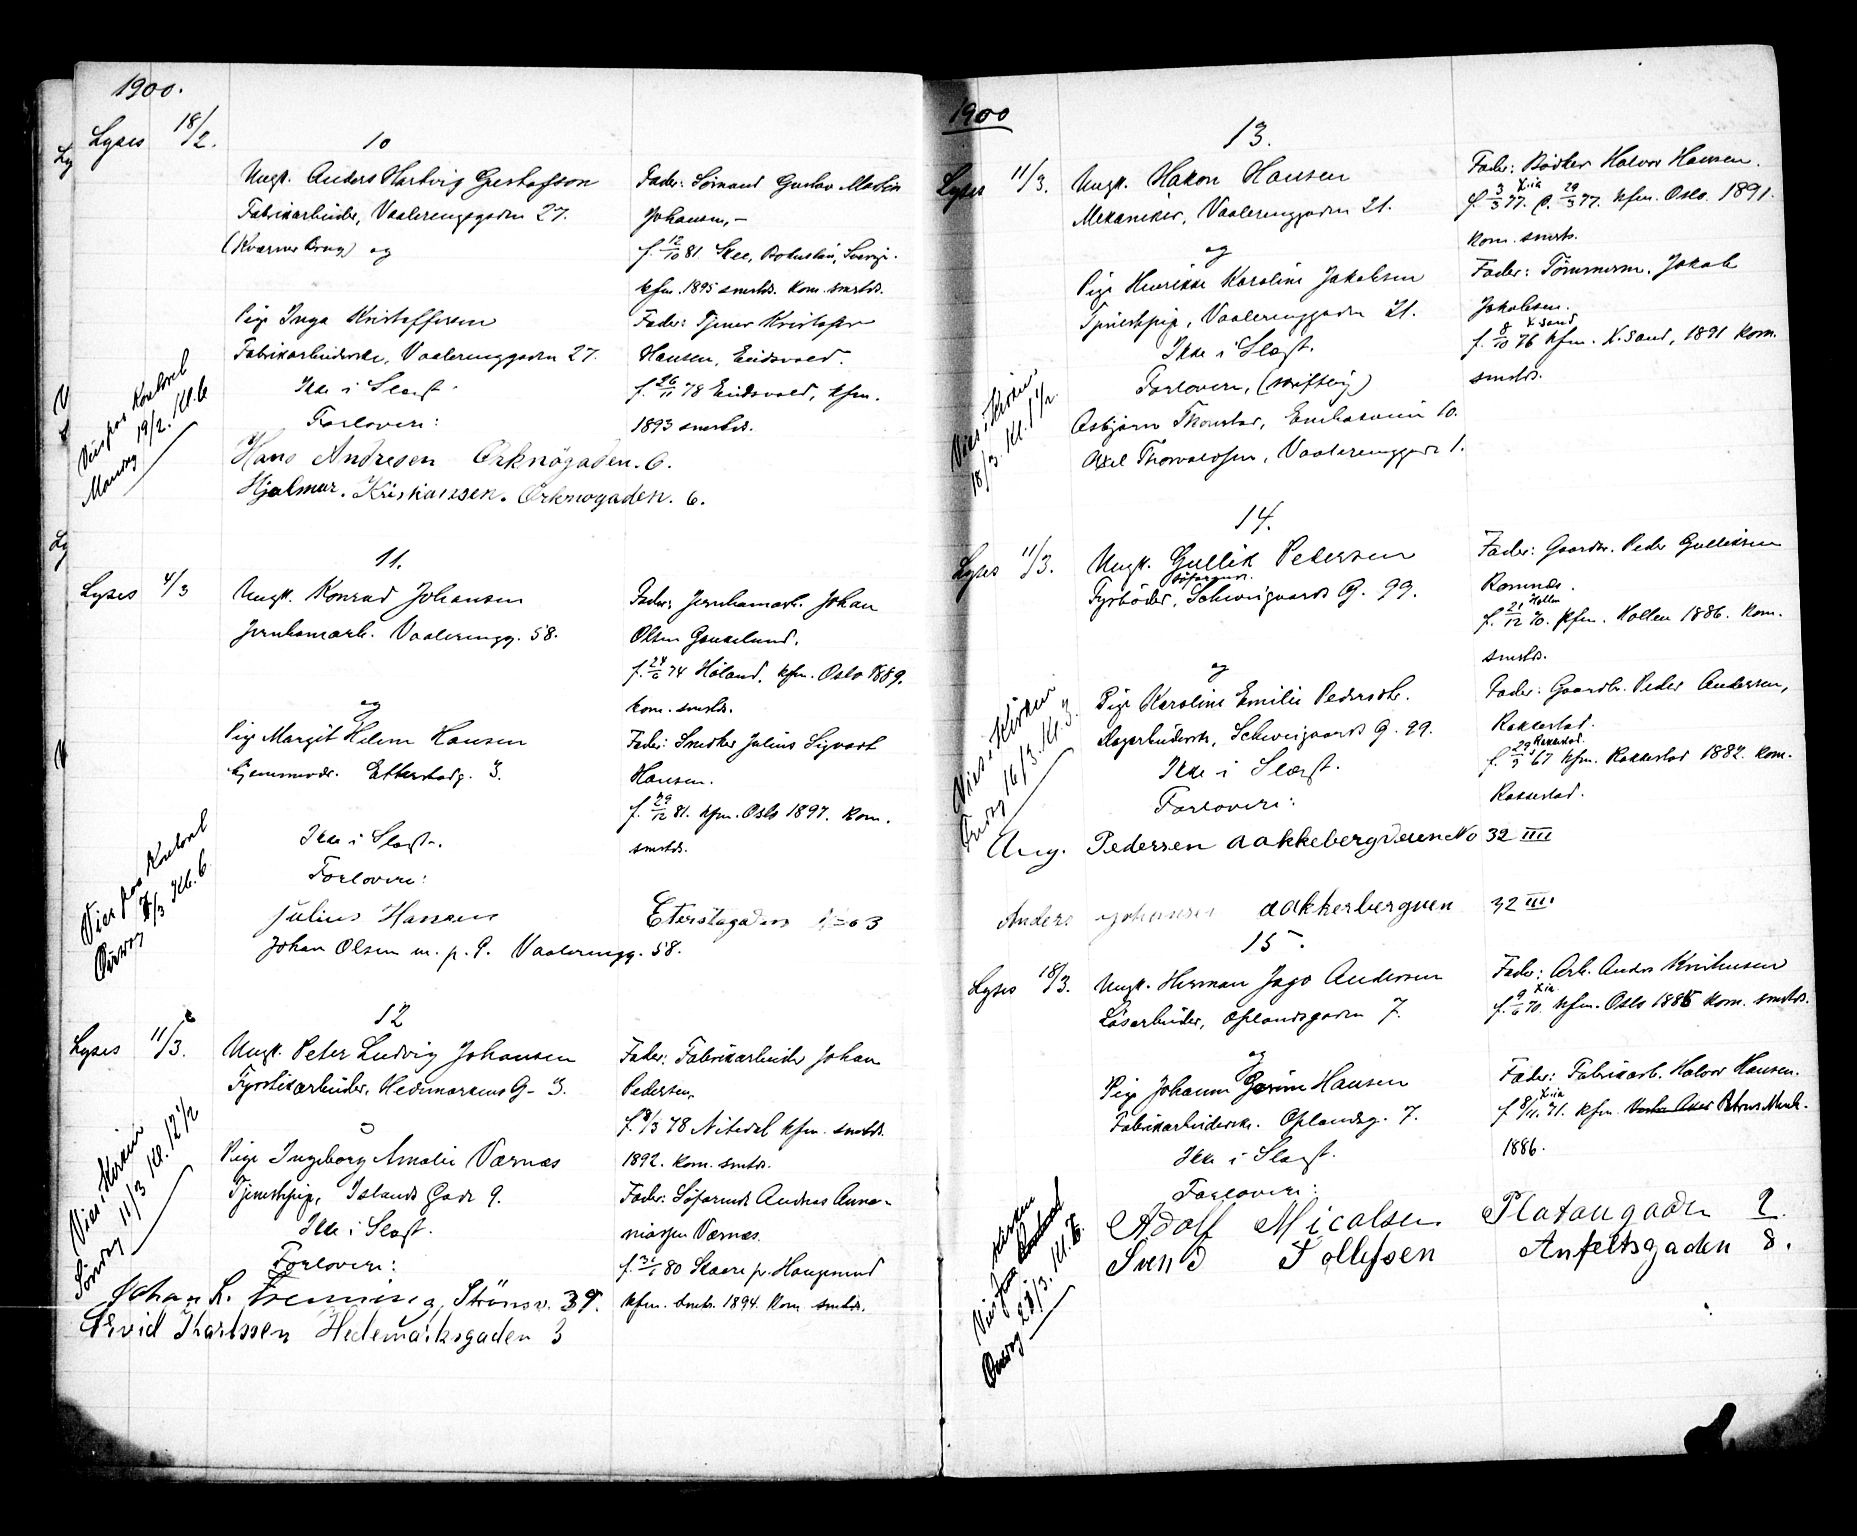 1900.
Lyses 18/2.
10
Ungk. Anders Hartvig Gustafson
Fabrikarbeider, Vaalerenggaden 27.
(Kværner Brug) og
Pige Inga Kristoffersen
Fabrikarbeiderske, Vaalerenggaden 27.
Ikke i Slægt.
Forlovere:
Hans Andresen Orknögaden. 6.
Hjalmar. Kristiansen. Orknøgaden. 6.
Fader: Sömand Gustav Martin
Johansen,-
f. 12/10 81. Skee, Bohuslän, Sverige.
kfm. 1895 smstds. kom. smstds.
Fader: Tjener Kristoffer
Hansen, Eidsvold.
f. 26/11 78 Eidsvold, kfm.
1893 smstds.
Vies paa Kontoret
Mandag 19/2. Kl. 6
11.
Lyses 4/3
Ungk. Konrad Johansen
Jernbanearb. Vaalerengg. 58.
og
Pige Margit Helene Hansen
Hjemmevær. Etterstadg. 3.
Ikke i Slægt.
Forlovere:
Julius Hansen Eterstagaden No 3
Johan Olsen m. p. P. Vaalerengg. 58.
Fader: Jernbanearb. Johan
Olsen
f. 24/6 74 Höland. kfm. Oslo 1889.
kom. smstds.
Fader: Snedker Julius Sigvart
Hansen.
f. 29/12 81. kfm. Oslo 1897. kom.
smstds.
Vies paa Kontoret
/3 Kl. 6
12
Lyses 11/3.
Ungk. Peter Ludvig Johansen
Fyrstikarbeider, Hedemarkens G. 3.
Pige Ingeborg Amalie Værnes
Tjenestepige, Islands Gade 9.
Ikke i Slægt.
Forlovere:
Johan L. Strömsv. 39.
Arvid Karlssen Hedemarksgaden 3
Fader: Fabrikarbeider Johan
Pedersen,
/3 78 Nitedal kfm. smstds.
1892. kom. smstds.
Fader: Söfarende Andreas
Værnes.
80 Skaare p. Haugesund
kfm. smstds. 1894. kom. smstds.
Vies i Kirken
Söndag 11/3 Kl. 12 1/2
1900
13.
Lyses 11/3.
Ungk. Hakon Hansen
Mekaniker, Vaalerenggaden 21.
og
Pige Henrikke Karoline Jakobsen
Tjenestepige, Vaalerenggaden 21.
Ikke i Slægt.
Forlovere, (skriftlig)
Asbjörn Thoustad, 10.
Axel Thorvaldsen, Vaalerenggade 1.
Fader: Bödker Halvor Hansen.
f. 3/3 77. Kria d. 29/3 77. kfm. Oslo 1891.
kom. smsts.
Fader: Tömmerm. Jakob
Jakobsen.
f. 8/10 76 K.sand kfm. K.sand, 1891 kom.
smstds.
Vies i Kirken
18/3. Kl. 1 1/2.
14.
Lyses 11/3.
Ungk. Gullik Pedersen
Fyrböder, söfarende. Schweigaards G. 99.
og
Pige Karoline Emilie Pedersdtr.
Schweigaards G. 99.
Ikke i Slægt.
Forlovere:
Aug. Pedersen aakkebergveien No 32 IIII
Anders Johansen aakkerbergveien 32 III
Fader: Gaardbr. Peder Gulliksen
Romnæs.
f. 21/12 70. Hollen kfm. Hollen 1886. kom.
smstds.
Fader: Gaardbr. Peder Andersen,
Rakkestad.
f. 29/5 67 Rakkestad. kfm. Rakkestad 1882. kom.
Rakkestad.
Vies i Kirken
Fredag 16/3. Kl. 3.
15.
Lyses 18/3.
Ungk. Herman Jago Andersen
Lösarbeider, Oplandsgaden 7.
og
Pige Johanne Hansen
Fabrikarbeiderske. Oplandsg. 7.
Ikke i Slægt.
Forlovere:
Adolf Micalsen Platougaden 2.
Svend Tollefsen Anfeltsgaden 8.
Fader: Arb. Anders Kristensen
f. 9/6 70. Kria kfm. Oslo 1885 kom. smstds.
Fader: Fabrikarb. Halvor Hansen.
f. 8/11. 71. Kria kfm. Petrus Menh.
1886.
Kirken
Vies paa Kontoret
Onsdag 28/3. Kl. 6